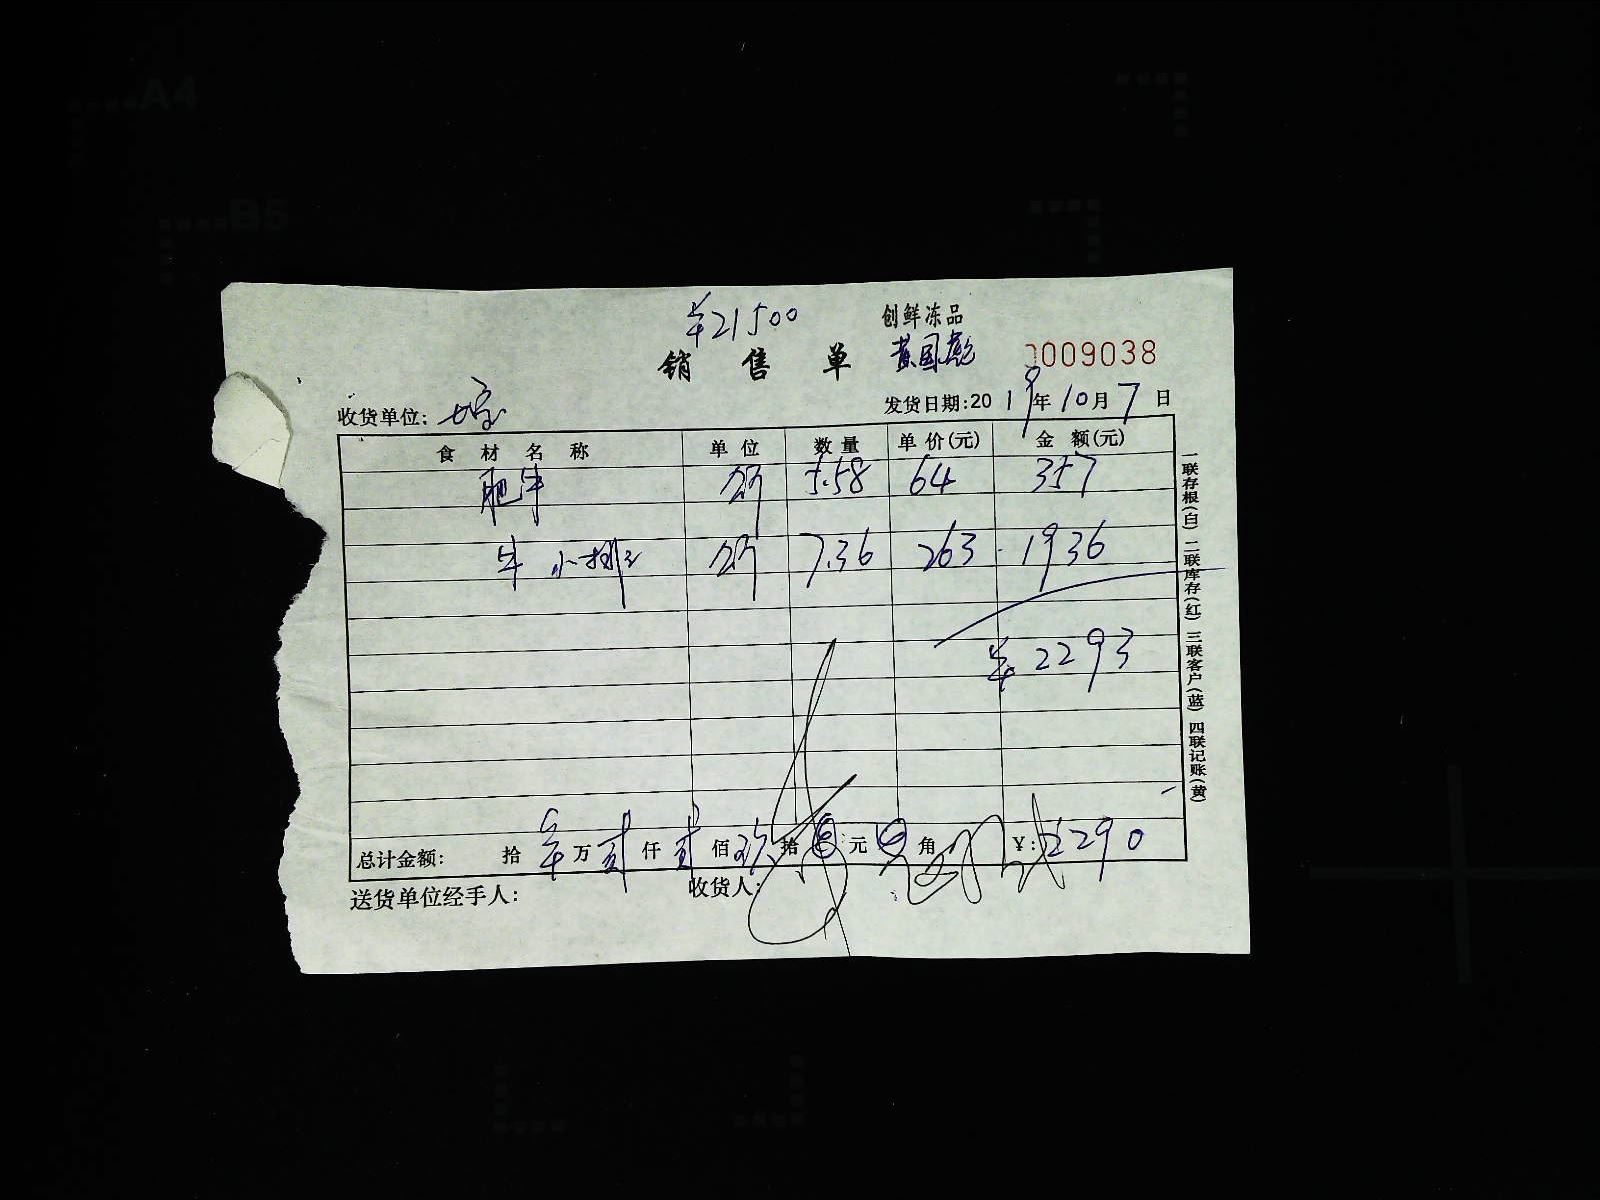 A4
B5
¥21500
创鲜冻品
销售单 黄国彪 0009038
收货单位: 发货日期:2019年10月7日
食材名称 单位 数量 单价(元) 金额(元)
肥牛 公斤 5.58 64 357
牛小排 公斤 7.36 263 1936
¥2293
总计金额: 拾 万贰仟贰佰玖拾零元零角 ¥:2290
送货单位经手人: 收货人:
一联存根(白) 二联库存(红) 三联客户(蓝) 四联记账(黄)